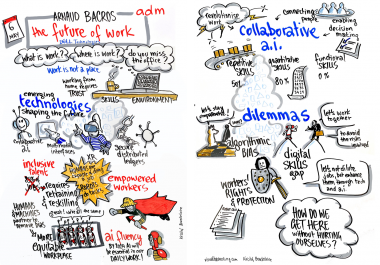 6 MAY
ARNAUD BACROS
adm
the future of work
what is work?
where is work?
do you miss the office?
work is not a place
working from home requires
TRUST
SKILLS
ENVIRONMENT
emerging
technologies
shaping the future
collaborative ai
multimodal interfaces
XR
secure distributed ledgers
inclusive talent
requires retraining & reskilling
empowered workers
HUMANS & MACHINES
equitable WORKPLACE
ai fluency
will be essential in our DAILY WORK!
revolutionise work
connecting people
enabling decision making
collaborative a.i.
repetitive SKILLS
quantitative skills
80%
functional SKILLS
0%
let's stay empowered!
dilemmas
let's work together
to avoid the risks involved
algorithmic BIAS
digital SKILLS gap
WORKERS' RIGHTS & PROTECTION
let's not dilute jobs, but enhance them through tech and ai
HOW DO WE GET HERE WITHOUT HURTING OURSELVES?